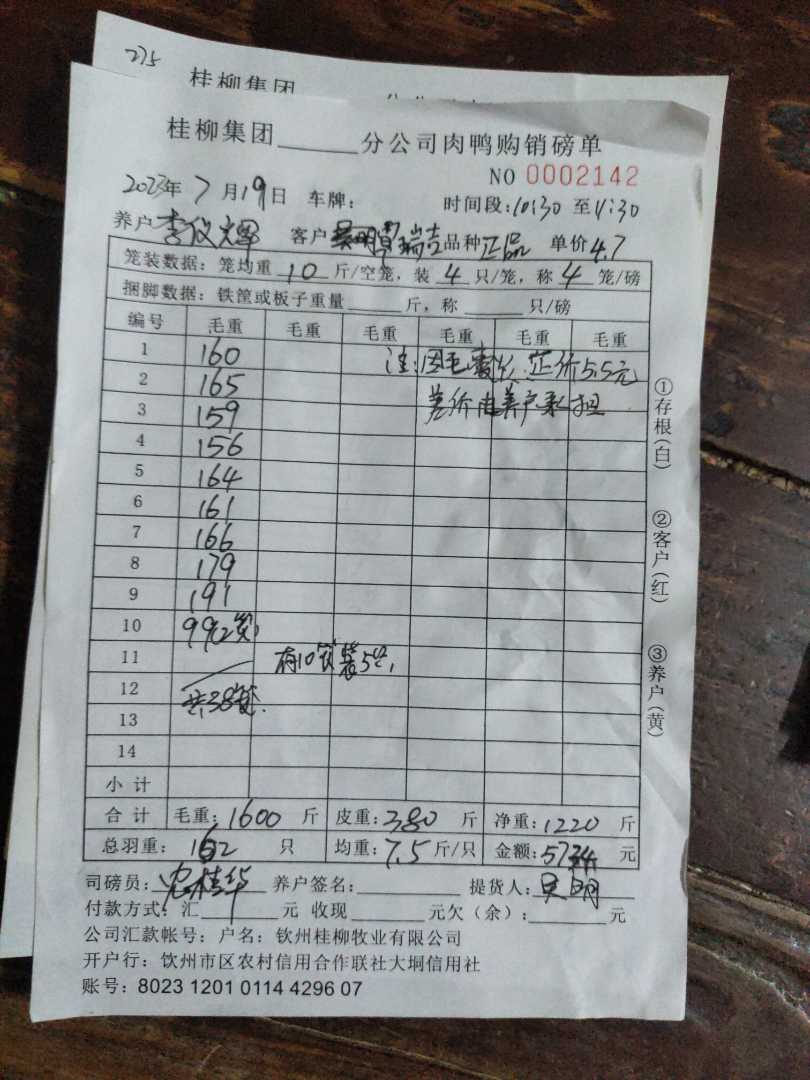 275
桂柳集团
桂柳集团______分公司肉鸭购销磅单
NO 0002142
2023年 7 月 19 日 车牌: 时间段: 10:30 至 11:30
养户 李仪辉 客户 吴明 瑞吉 品种 正品 单价 4.7
笼装数据: 笼均重 10 斤/空笼, 装 4 只/笼, 称 4 笼/磅
捆脚数据: 铁筐或板子重量______斤, 称______只/磅
编号 毛重 毛重 毛重 毛重 毛重 毛重
1 160 注: 因毛 定价5.5元
2 165
3 159 差价由养户承担
4 156
5 164
6 161
7 166
8 179
9 191
10 99(2笼)
11 有10笼装5只,
12 共38笼.
13
14
小计
合计 毛重: 1600 斤 皮重: 380 斤 净重: 1220 斤
总羽重: 162 只 均重: 7.5 斤/只 金额: 5734 元
司磅员: 桂华 养户签名: 提货人: 吴明
付款方式: 汇______元 收现______元欠(余):______元
公司汇款帐号: 户名: 钦州桂柳牧业有限公司
开户行: 钦州市区农村信用合作联社大垌信用社
账号: 8023 1201 0114 4296 07
①存根(白)
②客户(红)
③养户(黄)